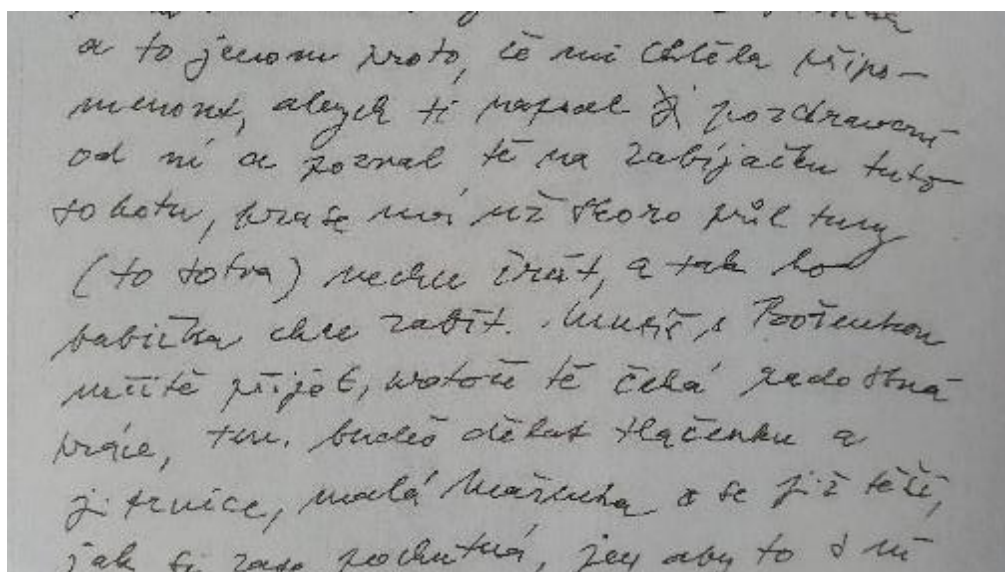 a to jenom proto, že mi chtěla připo-
menout, abych ti napsal pozdravení
od ní a pozval tě na zabíjačku tuto
sobotu, prase má už skoro půl tuny
(to sotva) nechce žrát, a tak ho
babička chce zabít. Musíš s Boženkou
určitě přijet, protože tě čeká radostná
práce, tzn. budeš dělat tlačenku a
jitrnice, malá Mařenka se již těší,
jak si zase pochutná, jen aby to s ní